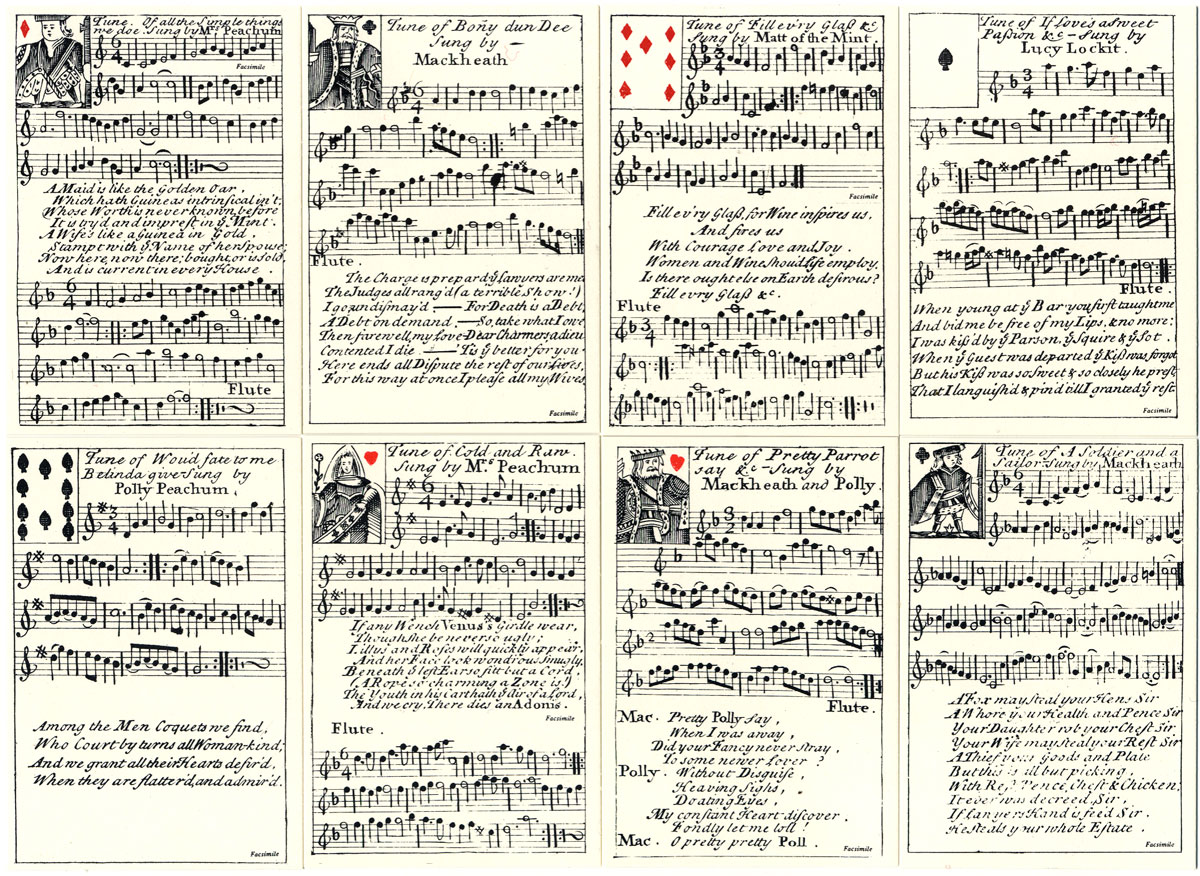 Tune. Of all the Simple things
we doe. Sung by Mrs Peachum
Facsimile
A Maid is like the Golden Oar,
Which hath Guineas intrinsical in't;
Whose Worth is never known, before
It is try'd and imprest in ye Mint.
A Wife's like a Guinea in Gold,
Stampt with ye Name of her Spouse;
Now here, now there; bought, or is sold,
And is current in every House.
Flute
Tune of Boñy dun Dee
Sung by
Mackheath
Flute.
The Charge is prepar'd ye Lawyers are met
The Judges all rang'd (a terrible Show!)
I go undismay'd — For Death is a Debt,
A Debt on demand — So, take what I owe
Then farewell my Love Dear Charmers adieu
Contented I die — 'Tis ye better for you
Here ends all Dispute the rest of our lives,
For this way at once I please all my Wives
Facsimile
Tune of Fill ev'ry Glaſs &c
Sung by Matt of the Mint
Facsimile
Fill ev'ry Glaſs, for Wine inſpires us,
And fires us
With Courage Love and Joy.
Women and Wine should life employ.
Is there ought else on Earth desirous?
Fill evry Glaſs &c.
Flute
Tune of If love's a Sweet
Paſsion &c – Sung by
Lucy Lockit.
Flute.
When young at ye Bar you first taught me
And bid me be free of my Lips, & no more;
I was kiſs'd by ye Parson, ye Squire & ye Sot.
When ye Guest was departed ye Kiſs was forgot
But his Kiſs was so sweet & so closely he prest
That I languish'd & pin'd till I granted ye rest
Facsimile
Tune of Wou'd fate to me
Belinda give Sung by
Polly Peachum,
Among the Men Coquets we find,
Who Court by turns all Woman-kind;
And we grant all their Hearts desir'd,
When they are flatter'd, and admir'd.
Facsimile
Tune of Cold and Raw.
Sung by Mrs Peachum
If any Wench Venus's Girdle wear,
Though she be never so ugly;
Lillys and Roses will quickly appear,
And her Face look wondrous smugly.
Beneath ye left Ear so fitt but a Cord,
(A Rope so charming a Zone is)
The Youth in his Cart hath ye Air of a Lord,
And we cry, There dies an Adonis.
Facsimile
Flute.
Tune of Pretty Parrot
say &c – Sung by
Mackheath and Polly.
Flute.
Mac. Pretty Polly say,
When I was away,
Did your Fancy never stray,
To some newer Lover?
Polly. Without Disguise,
Heaving Sighs,
Doating Eyes,
My constant Heart discover.
Fondly let me loll!
Mac. O pretty pretty Poll.
Facsimile
Tune of A Soldier and a
Sailor Sung by Mackheath
A Fox may steal your Hens Sir
A Whore your Health and Pence Sir
Your Daughter rob your Chest Sir
Your Wife may steal your Rest Sir
A Thief your Goods and Plate
But this is all but picking,
With Rest Pence, Chest & Chicken;
It ever was decreed, Sir,
If Lawyers Hand is fee'd Sir.
He steals your whole Estate.
Facsimile